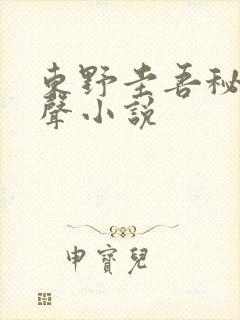 東野圭吾秘
聲小說
申寶兒